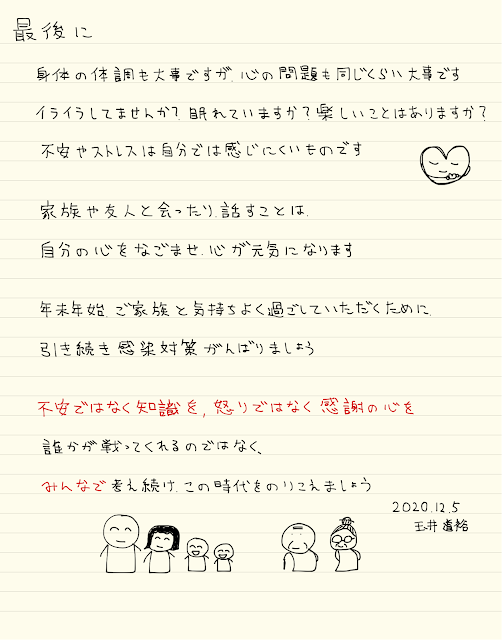 最後に
身体の体調も大事ですが、心の問題も同じくらい大事です
イライラしてませんか？眠れていますか？楽しいことはありますか？
不安やストレスは自分では感じにくいものです
家族や友人と会ったり、話すことは、
自分の心をなごませ、心が元気になります
年末年始、ご家族と気持ちよく過ごしていただくために、
引き続き感染対策がんばりましょう
不安ではなく知識を、怒りではなく感謝の心を
誰かが戦ってくれるのではなく、
みんなで考え続け、この時代をのりこえましょう
2020.12.5
玉井道裕